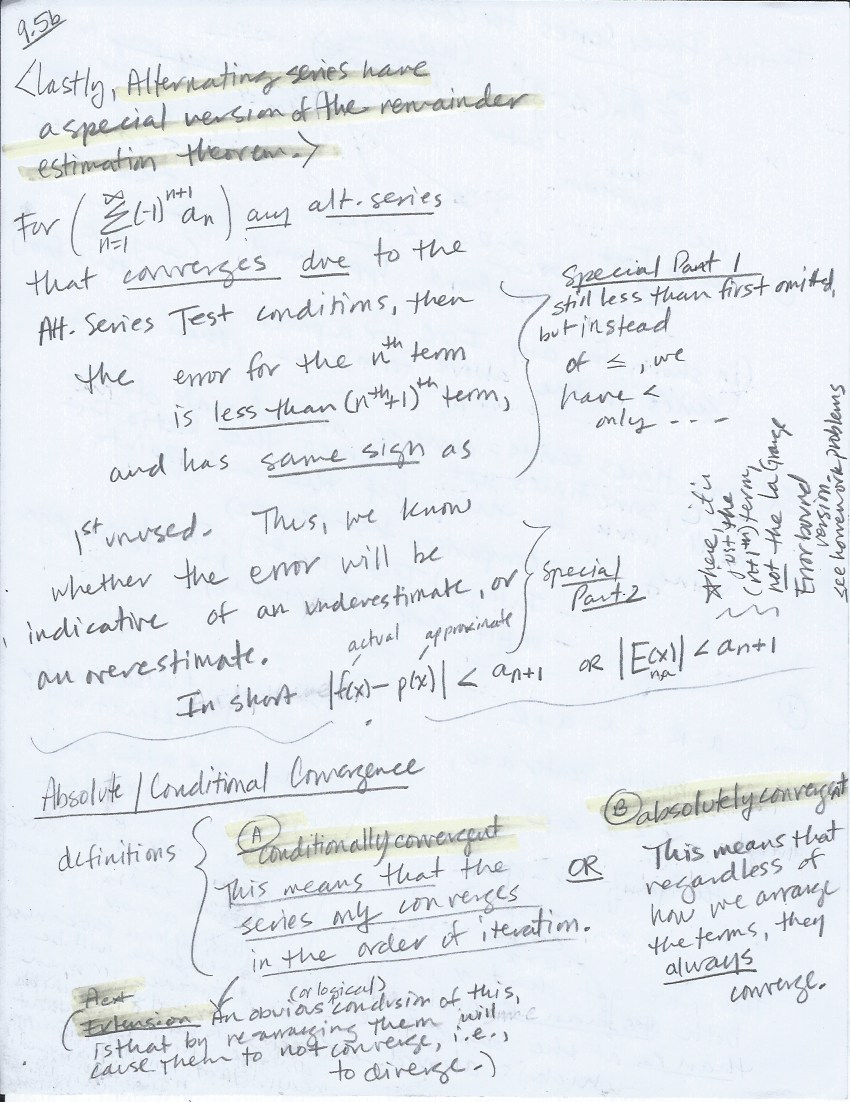 9.5b
<lastly, Alternating series have
a special version of the remainder
estimation theorem.>
For ( ∞ Σ n=1 (-1)^(n+1) a_n ) any alt. series
that converges due to the
Alt. Series Test conditions, then
the error for the n^th term
is less than (n^th+1)^th term,
and has same sign as
1st unused. Thus, we know
whether the error will be
indicative of an underestimate, or
an overestimate.
Special Part 1
still less than first omitted,
but instead
of ≤, we
have <
only - - - -
Special
Part 2
☆here it is
just the
(n+1^th) term,
not the LaGrange
Error bound
version.
see homework problems
actual approximate
In short |f(x) - p(x)| < a_n+1 OR |E(x)| < a_n+1
n,a
Absolute/Conditional Convergence
definitions
Ⓐ
conditionally convergent
This means that the
series only converges
in the order of iteration.
OR
Ⓑ absolutely convergent
This means that
regardless of
how we arrange
the terms, they
always
converge.
(or logical)
( Extension An obvious conclusion of this,
is that by re-arranging them will
cause them to not converge, i.e.,
to diverge.)